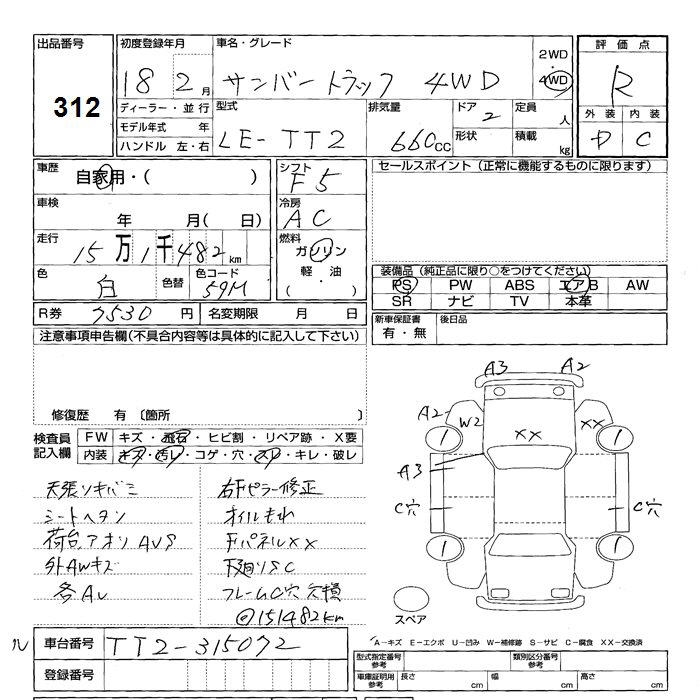 出品番号
312
初度登録年月
18 2月
ディーラー・並行
モデル年式 年
ハンドル 左・右
車名・グレード
サンバートラック 4WD
2WD
4WD
型式
LE-TT2
排気量
660cc
ドア
2
形状
定員
人
積載
kg
評価点
R
外装 内装
D C
車歴
自家用・( )
車検
年 月( 日)
走行
15万1千482km
色
白
色替
色コード
59M
シフト
F5
冷房
AC
燃料
ガソリン
軽・油
( ・ )
セールスポイント(正常に機能するものに限ります)
装備品(純正品に限り○をつけてください)
PS PW ABS エアB AW
SR ナビ TV 本革
R券 7530円
名変期限 月 日
新車保証書
有・無
後日品
注意事項申告欄(不具合内容等は具体的に記入して下さい)
修復歴 有 〔箇所
検査員記入欄
FW キズ・飛石・ヒビ割・リペア跡・X要
内装 キズ・汚レ・コゲ・穴・スレ・キレ・破レ
天張リキバミ
シートヘタリ
荷台,アオリAUS
外AWキズ
各AU
右Fピラー修正
オイルもれ
FパネルXX
下廻りSC
フレームC穴 欠損
@151482km
A3 A2
A2 W2 XX XX
A3
C穴 C穴
スペア
A-キズ E-エクボ U-凹み W-補修跡 S-サビ C-腐食 XX-交換済
車台番号
TT2-315072
登録番号
型式指定番号 参考
類別区分番号 参考
車庫証明用 参考
長さ cm
幅 cm
高さ cm